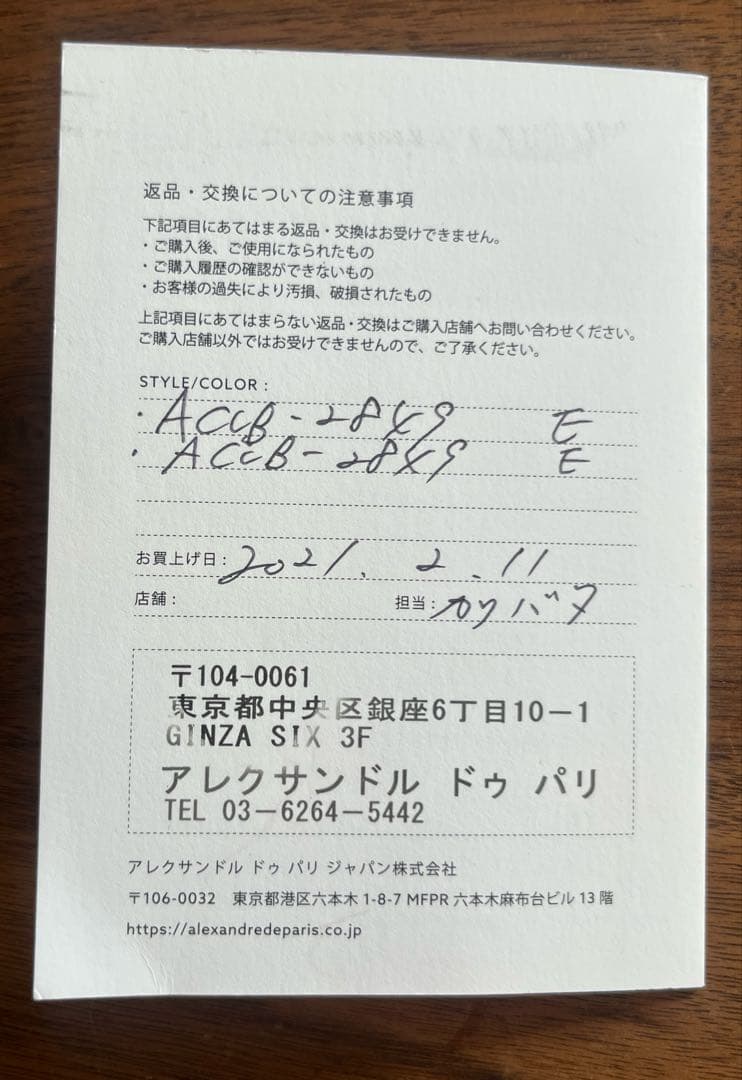 返品・交換についての注意事項
下記項目にあてはまる返品・交換はお受けできません。
・ご購入後、ご使用になられたもの
・ご購入履歴の確認ができないもの
・お客様の過失により汚損、破損されたもの
上記項目にあてはまらない返品・交換はご購入店舗へお問い合わせください。
ご購入店舗以外ではお受けできませんので、ご了承ください。
STYLE/COLOR :
・ACCB-2849 E
・ACCB-2849 E
お買上げ日 : 2021. 2. 11
店舗 : 担当 :
〒104-0061
東京都中央区銀座6丁目10−1
GINZA SIX 3F
アレクサンドル ドゥ パリ
TEL 03−6264−5442
アレクサンドル ドゥ パリ ジャパン株式会社
〒106-0032 東京都港区六本木 1-8-7 MFPR 六本木麻布台ビル 13 階
https://alexandredeparis.co.jp